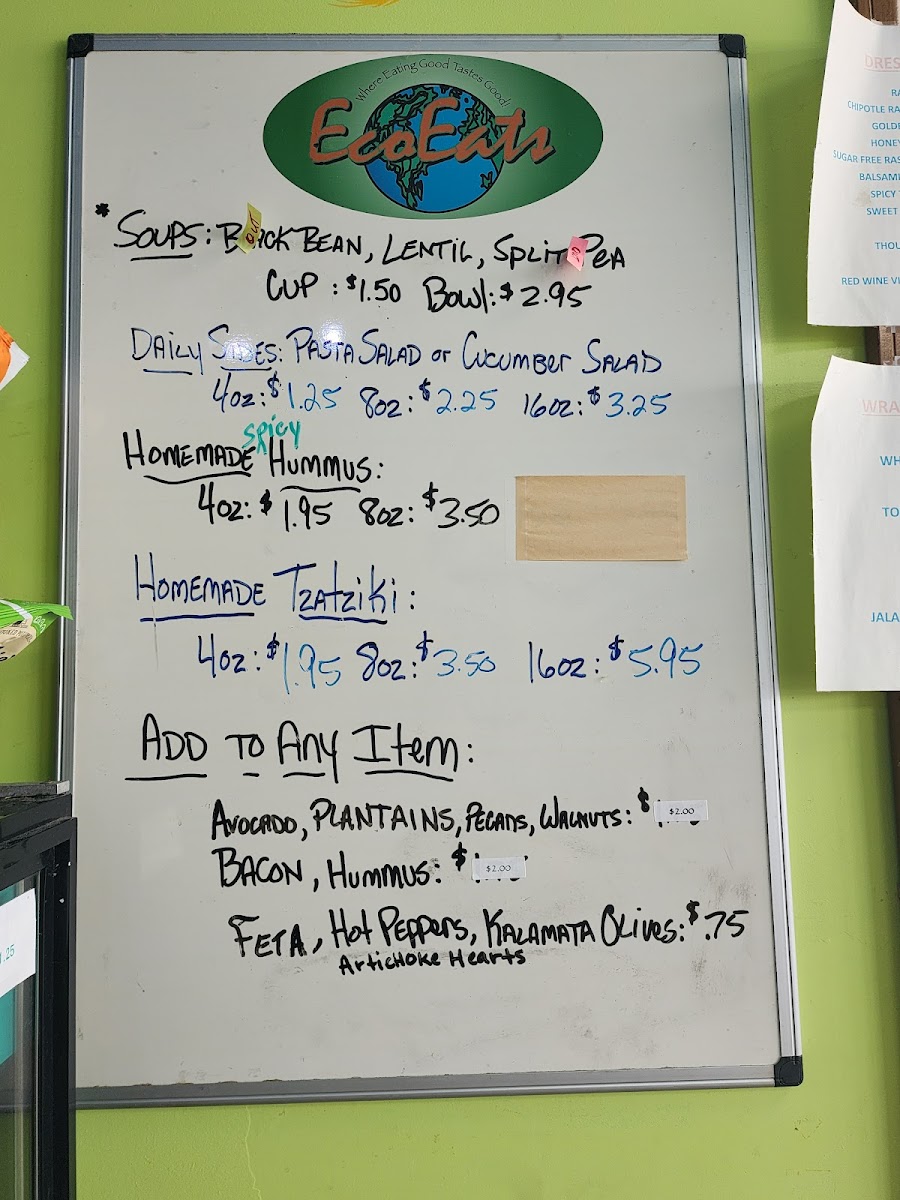 Where Eating Good Tastes Good!
EcoEats
* SOUPS: BLACK BEAN, LENTIL, SPLIT PEA
OUT
CUP : $1.50 Bowl: $2.95
DAILY SIDES: PASTA SALAD or CUCUMBER SALAD
4oz: $1.25 8oz: $2.25 16oz: $3.25
spicy
HOMEMADE HUMMUS:
4oz: $1.95 8oz: $3.50
HOMEMADE TZATZIKI:
4oz: $1.95 8oz: $3.50 16oz: $5.95
ADD TO ANY ITEM:
AVOCADO, PLANTAINS, PECANS, WALNUTS: $ $2.00
BACON, HUMMUS: $ $2.00
FETA, Hot Peppers, KALAMATA OLIVES: $.75
Artichoke Hearts
DRES
RA
CHIPOTLE RA
GOLDE
HONEY
SUGAR FREE RAS
BALSAMI
SPICY
SWEET
THOU
RED WINE VI
WRA
WH
TO
JALA
.25